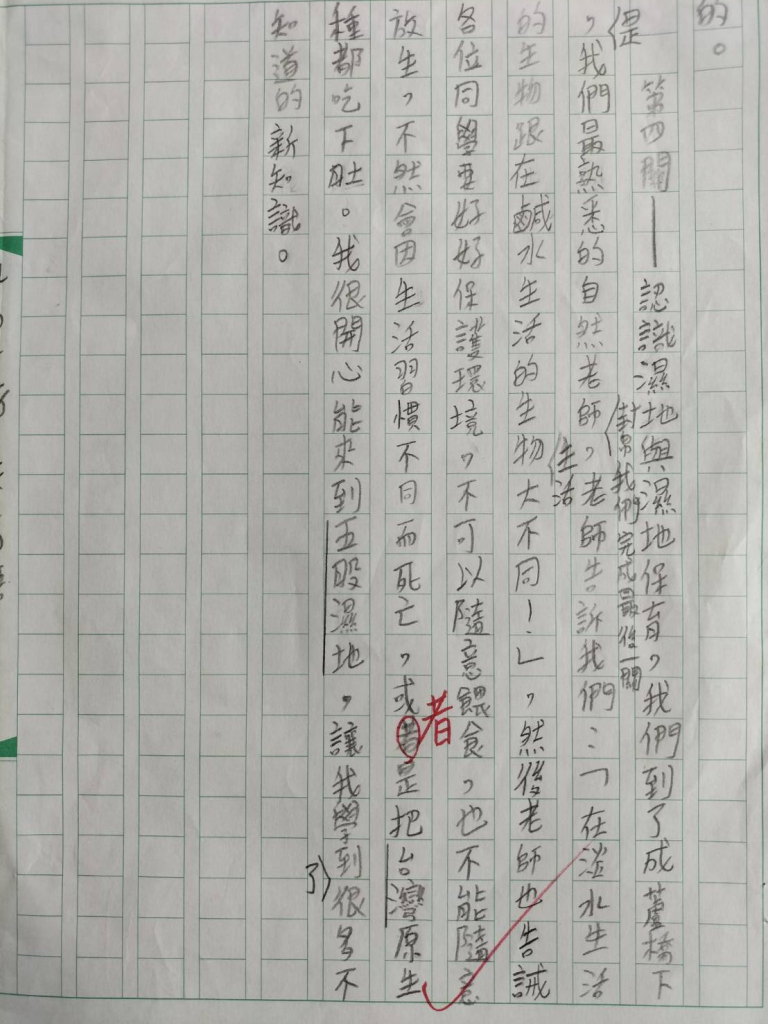 的。
第四關——認識濕地與濕地保育,我們到了成蘆橋下
封帛我們完成最後一關
是
,我們最熟悉的自然老師,老師告訴我們:「在淡水生活
生活
的生物跟在鹹水生活的生物大不同!」,然後老師也告誡
各位同學要好好保護環境,不可以隨意餵食,也不能隨意
者
放生,不然會因生活習慣不同而死亡,或者是把台灣原生
種都吃下肚。我很開心能來到五股濕地,讓我學到很多不
了
知道的新知識。